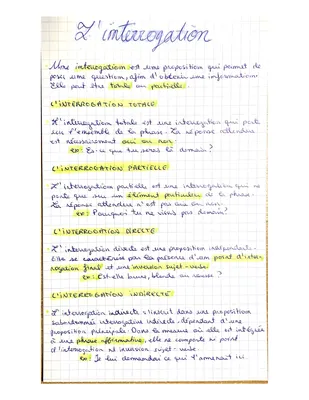 L'interrogation
Une interrogation est une proposition qui permet de
poser une question, afin d'obtenir une information.
Elle peut être totale ou partielle.
L'INTERROGATION TOTALE
L'interrogation totale est une interrogation qui porte
sur l'ensemble de la phrase. La réponse attendue
est nécessairement oui ou non.
ex: Es-ce que tu seras là demain?
L'INTERROGATION PARTIELLE
L'interrogation partielle est une interrogation qui ne
porte que sur un élément particulier de la phrase.
La réponse attendue n'est pas oui ou non.
ex: Pourquoi tu ne viens pas demain?
L'INTERROGATION DIRECTE
L'interrogation directe est une proposition indépendante.
Elle se caractérise par la présence d'un point d'inter-
rogation final et une inversion sujet-verbe.
ex: Est-elle brune, blonde ou rousse?
L'INTERROGATION INDIRECTE
L'interrogation indirecte s'inscrit dans une proposition
subordonnée interrogative indirecte dépendant d'une
proposition principale. Dans la mesure où elle est intégrée
à une phrase affirmative, elle ne comporte ni point
d'interrogation ni inversion sujet-verbe.
ex: Je lui demandai ce qui l'amenait ici.